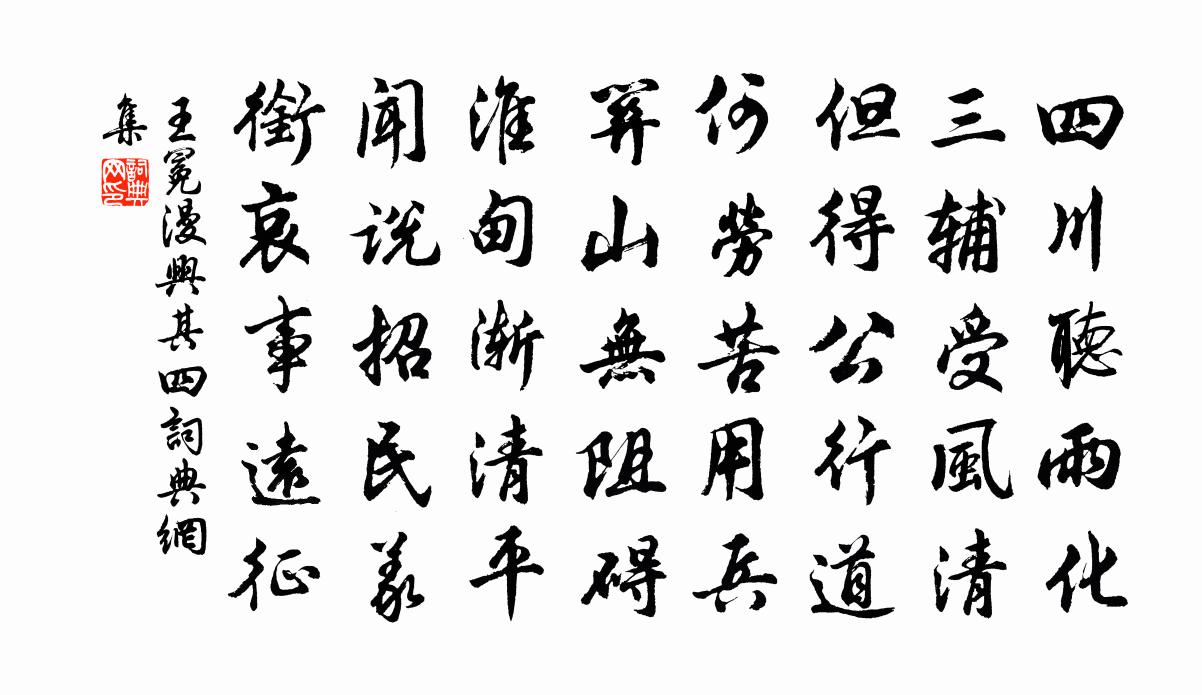 四川聽雨化
三輔受風清
但得公行道
何勞苦用兵
關山無阻碍
淮甸漸清平
聞説招民義
銜哀事遠征
王冕漫興其四詞典網
集
詞典
网印